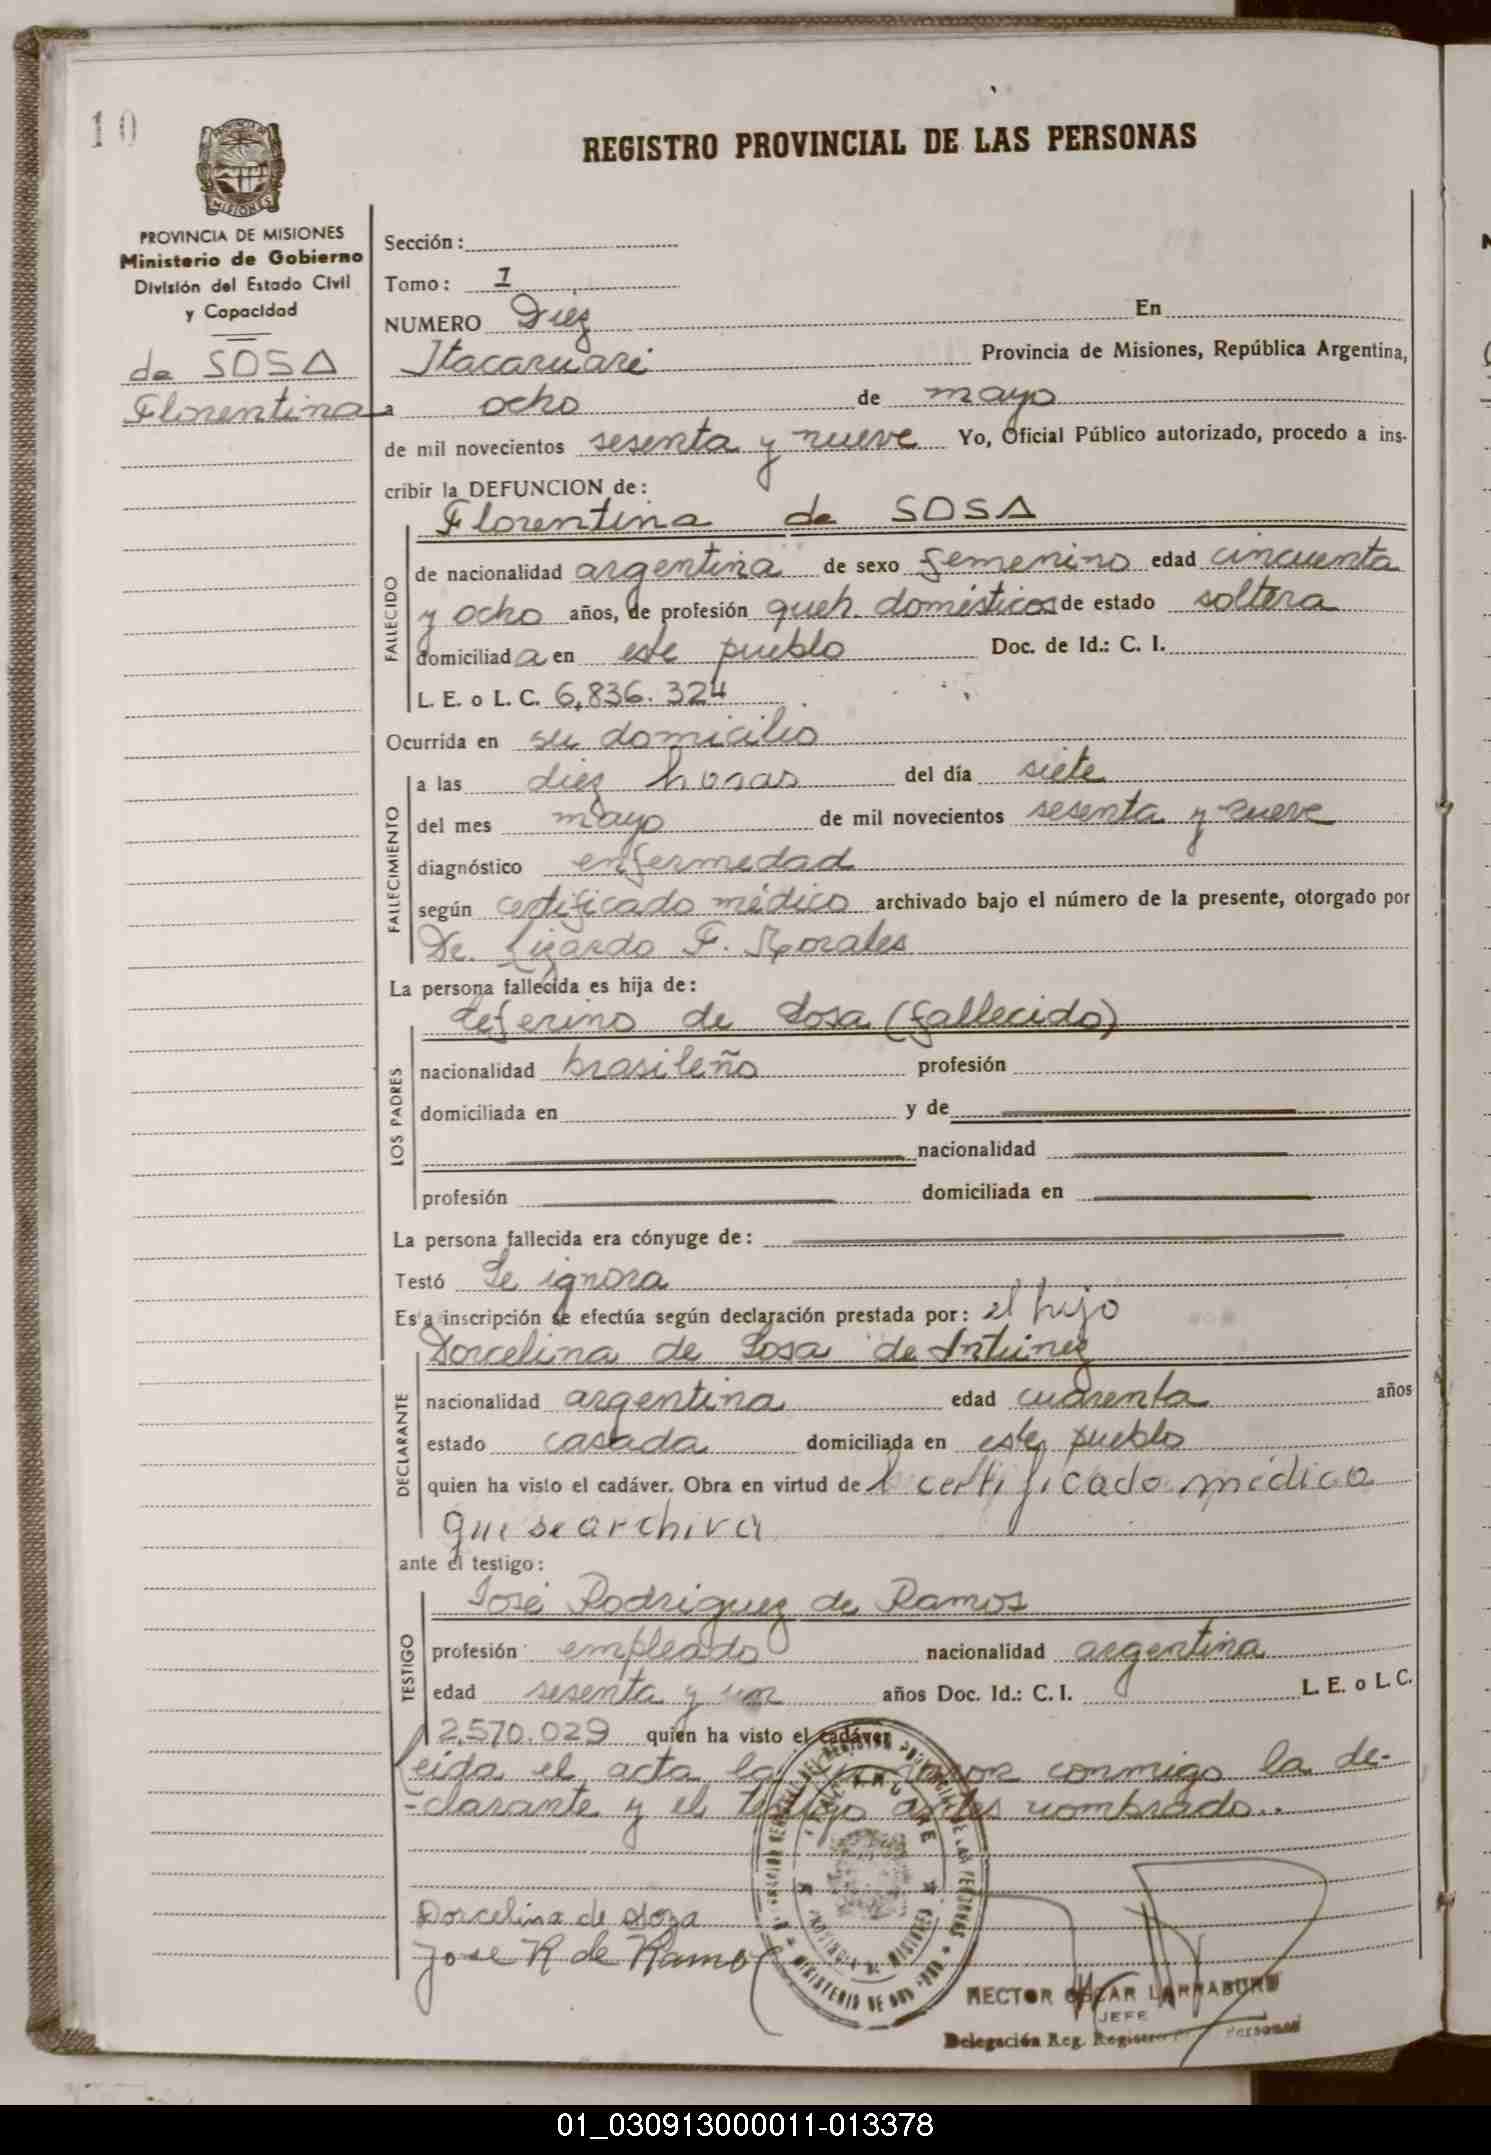 10
REGISTRO PROVINCIAL DE LAS PERSONAS
MISIONES
PROVINCIA DE MISIONES
Ministerio de Gobierno
División del Estado Civil
y Capacidad
de SOSA
Florentina
Sección:
Tomo: 1
NUMERO Diez En
Itacaruaré Provincia de Misiones, República Argentina,
a ocho de mayo
de mil novecientos sesenta y nueve Yo, Oficial Público autorizado, procedo a ins-
cribir la DEFUNCION de:
Florentina de SOSA
FALLECIDO
de nacionalidad argentina de sexo femenino edad cincuenta
y ocho años, de profesión queh. domésticos de estado soltera
domiciliada en este pueblo Doc. de Id.: C. I.
L. E. o L. C. 6,836.324
Ocurrida en su domicilio
FALLECIMIENTO
a las diez horas del día siete
del mes mayo de mil novecientos sesenta y nueve
diagnóstico enfermedad
según certificado médico archivado bajo el número de la presente, otorgado por
Dr. Lizardo F. Morales
La persona fallecida es hija de:
LOS PADRES
Seferino de Sosa (fallecido)
nacionalidad brasileño profesión
domiciliada en y de
nacionalidad
profesión domiciliada en
La persona fallecida era cónyuge de:
Testó Se ignora
Esta inscripción se efectúa según declaración prestada por: el hijo
DECLARANTE
Dorcelina de Sosa de Antúnez
nacionalidad argentina edad cuarenta años
estado casada domiciliada en este pueblo
quien ha visto el cadáver. Obra en virtud del certificado médico
que se archiva
ante el testigo:
TESTIGO
José Rodriguez de Ramos
profesión empleado nacionalidad argentina
edad sesenta y un años Doc. Id.: C. I. L. E. o L. C.
2,570.029 quien ha visto el cadáver
Leida el acta la conmigo la de-
-clarante y el testigo antes nombrado..
Dorcelina de Soza
Jose R de Ramos
HECTOR OSCAR LARRABURU
JEFE
Delegación Reg. Registro Personas
PROVINCIA DE MISIONES
01_030913000011-013378